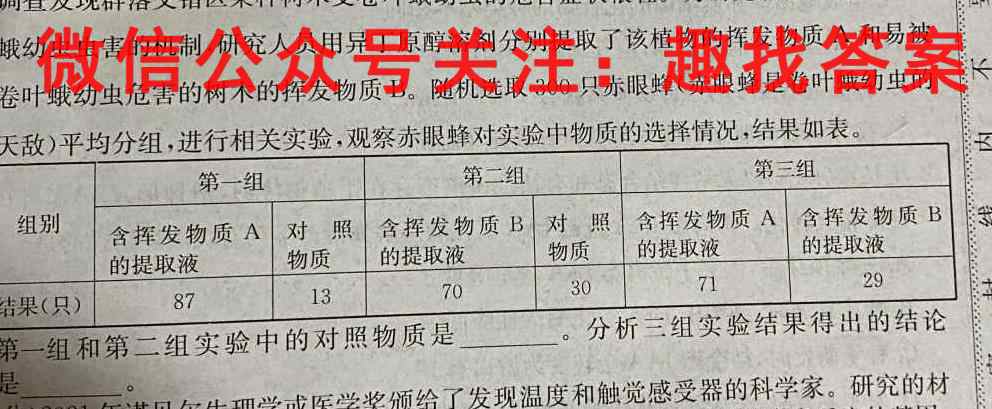 调查发现群落交错区某种树木受卷叶蛾幼虫的危害症状很轻。
蛾幼虫危害的机制,研究人员用异丁原醇溶剂分别提取了该植物的挥发物质A和易被
微信公众号关注:趣找答案
卷叶蛾幼虫危害的树木的挥发物质B。随机选取300只赤眼蜂(赤眼蜂是卷叶蛾幼虫的
天敌)平均分组,进行相关实验,观察赤眼蜂对实验中物质的选择情况,结果如表。
组别 第一组 第二组 第三组
含挥发物质A的提取液 对照物质 含挥发物质B的提取液 对照物质 含挥发物质A的提取液 含挥发物质B的提取液
结果(只) 87 13 70 30 71 29
第一组和第二组实验中的对照物质是________。分析三组实验结果得出的结论
是________。
年诺贝尔生理学或医学奖颁给了发现温度和触觉感受器的科学家。研究的材
不
内
线
封